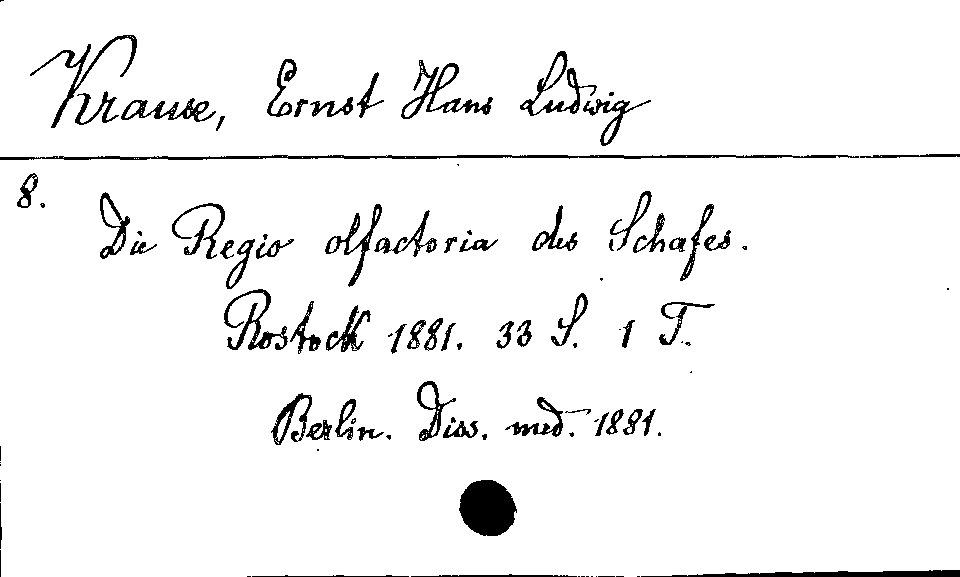 Krause, Ernst Hans Ludwig
8.
Die Regio olfactoria des Schafes.
Rostock 1881. 33 S. 1 T.
Berlin. Diss. med. 1881.